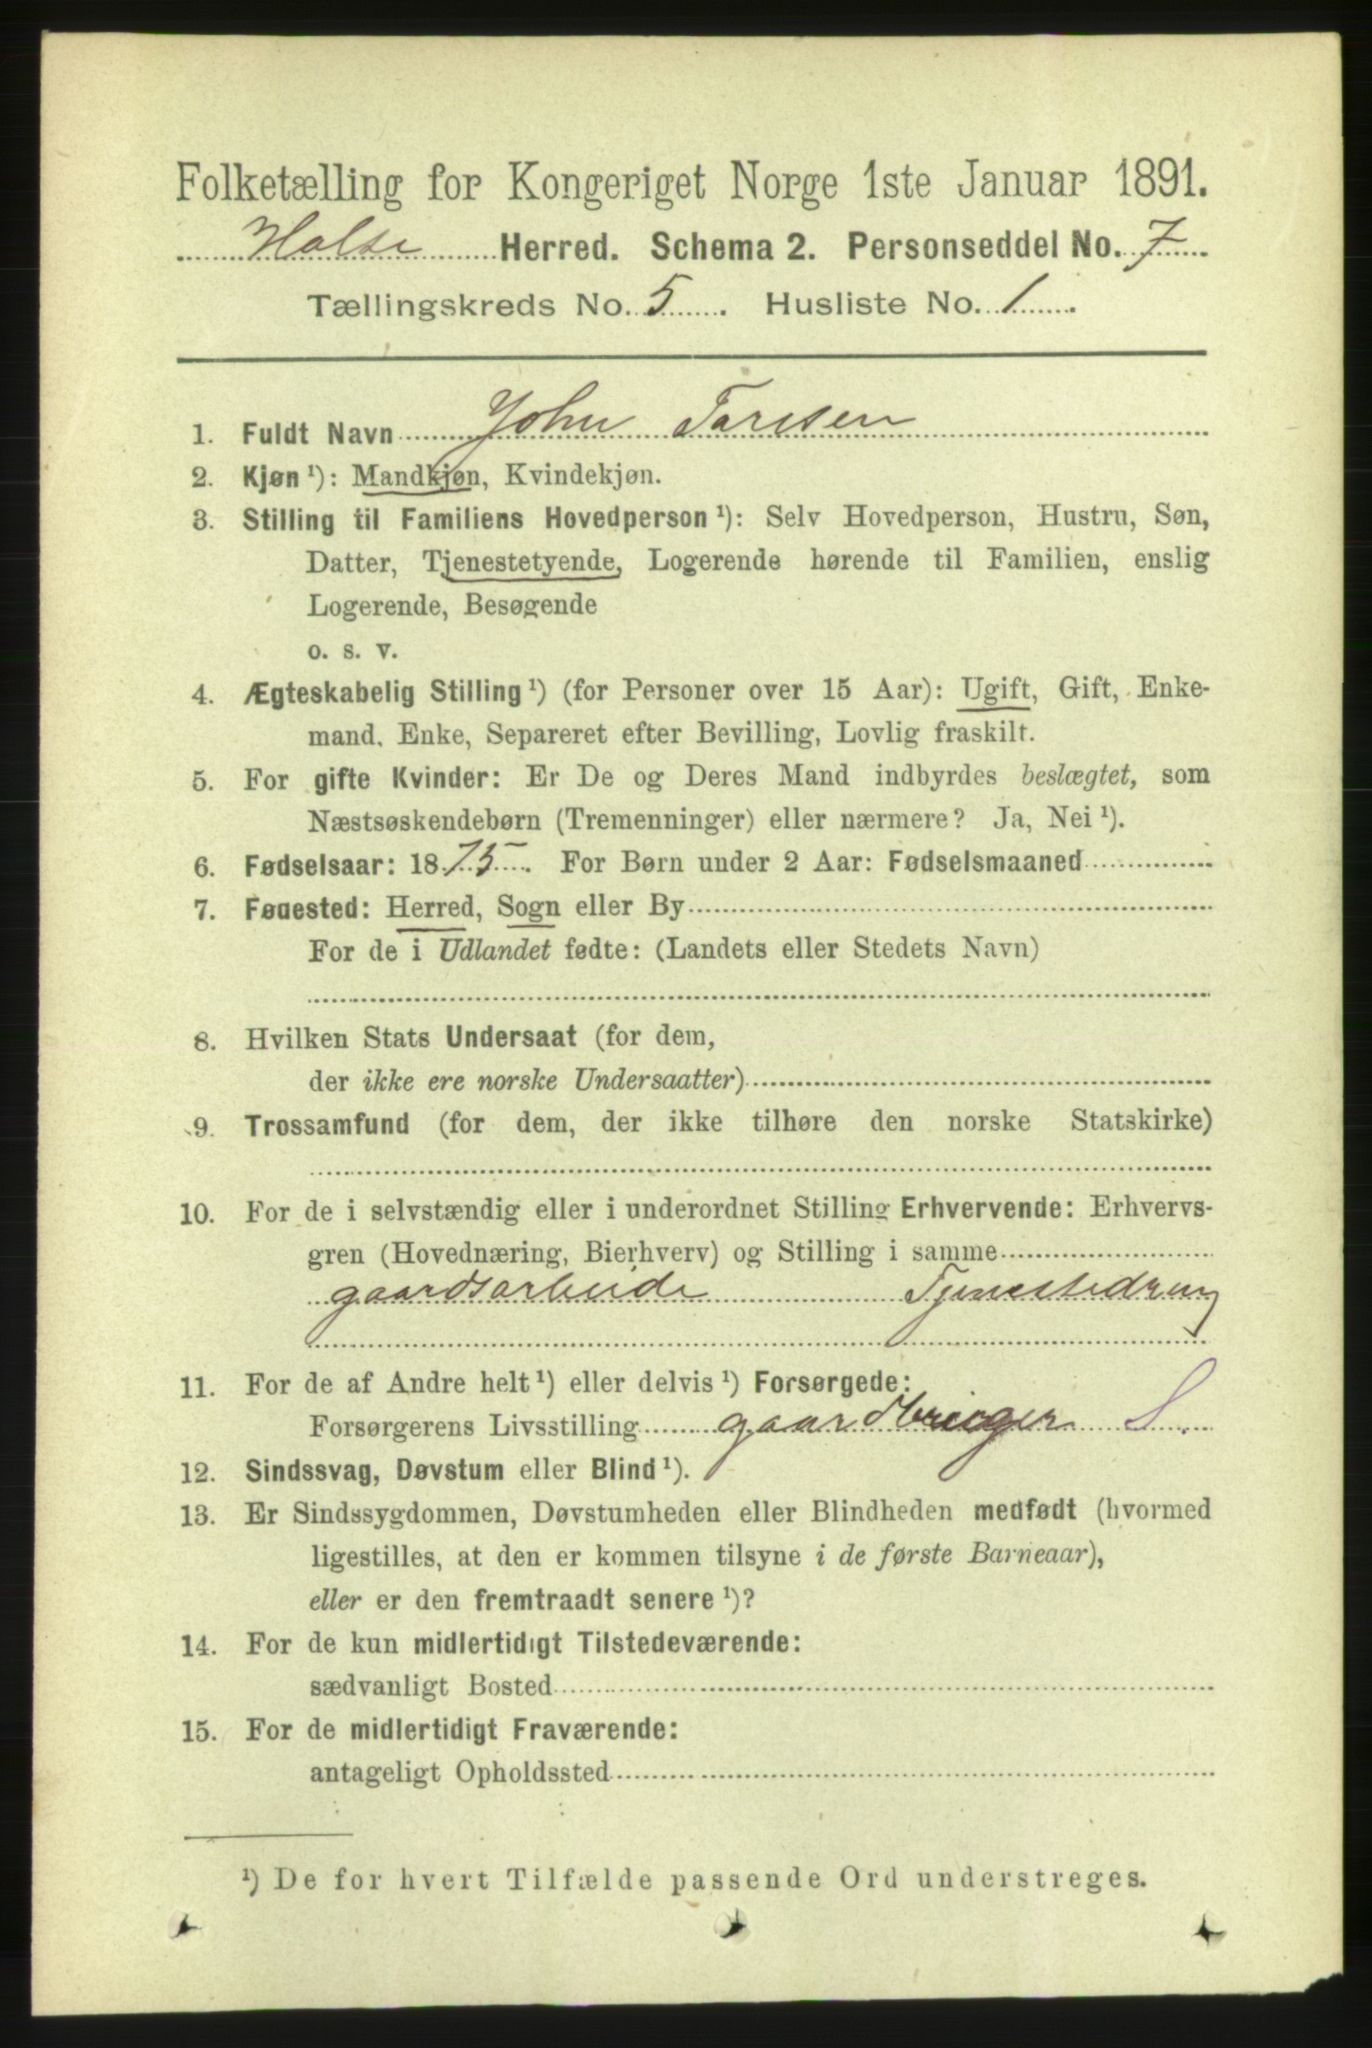 Folketælling for Kongeriget Norge 1ste Januar 1891.
Halse Herred. Schema 2. Personseddel No. 7
Tællingskreds No. 5. Husliste No. 1.
1. Fuldt Navn John Toresen
2. Kjøn ¹): Mandkjøn, Kvindekjøn.
3. Stilling til Familiens Hovedperson ¹): Selv Hovedperson, Hustru, Søn,
Datter, Tjenestetyende, Logerende hørende til Familien, enslig
Logerende, Besøgende
o. s. v.
4. Ægteskabelig Stilling ¹) (for Personer over 15 Aar): Ugift, Gift, Enke-
mand, Enke, Separeret efter Bevilling, Lovlig fraskilt.
5. For gifte Kvinder: Er De og Deres Mand indbyrdes beslægtet, som
Næstsøskendebørn (Tremenninger) eller nærmere? Ja, Nei ¹).
6. Fødselsaar: 1875. For Børn under 2 Aar: Fødselsmaaned
7. Fødested: Herred, Sogn eller By
For de i Udlandet fødte: (Landets eller Stedets Navn)
8. Hvilken Stats Undersaat (for dem,
der ikke ere norske Undersaatter)
9. Trossamfund (for dem, der ikke tilhøre den norske Statskirke)
10. For de i selvstændig eller i underordnet Stilling Erhvervende: Erhvervs-
gren (Hovednæring, Bierhverv) og Stilling i samme
gaardsarbeide Tjenestedreng
11. For de af Andre helt ¹) eller delvis ¹) Forsørgede:
Forsørgerens Livsstilling gaardbruger S.
12. Sindssvag, Døvstum eller Blind ¹).
13. Er Sindssygdommen, Døvstumheden eller Blindheden medfødt (hvormed
ligestilles, at den er kommen tilsyne i de første Barneaar),
eller er den fremtraadt senere ¹)?
14. For de kun midlertidigt Tilstedeværende:
sædvanligt Bosted
15. For de midlertidigt Fraværende:
antageligt Opholdssted
¹) De for hvert Tilfælde passende Ord understreges.